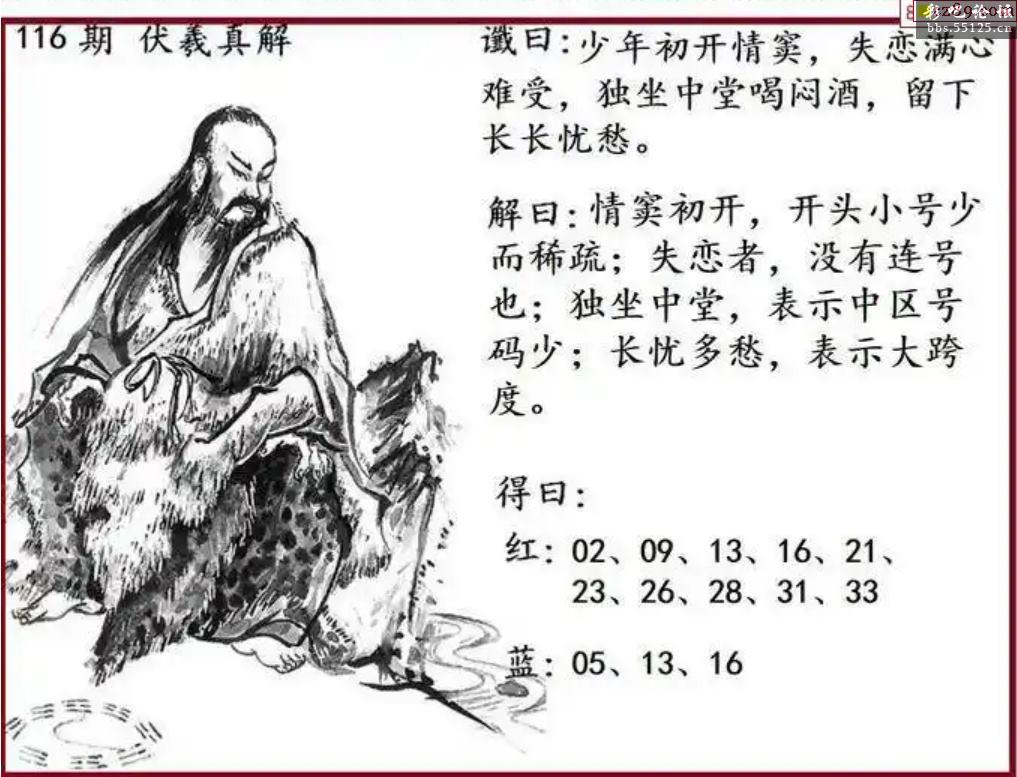 彩吧论坛
bbs.55125.cn
116期 伏羲真解
谶曰:少年初开情窦，失恋满心
难受，独坐中堂喝闷酒，留下
长长忧愁。
解曰:情窦初开，开头小号少
而稀疏；失恋者，没有连号
也；独坐中堂，表示中区号
码少；长忧多愁，表示大跨
度。
得曰:
红: 02、09、13、16、21、
23、26、28、31、33
蓝: 05、13、16